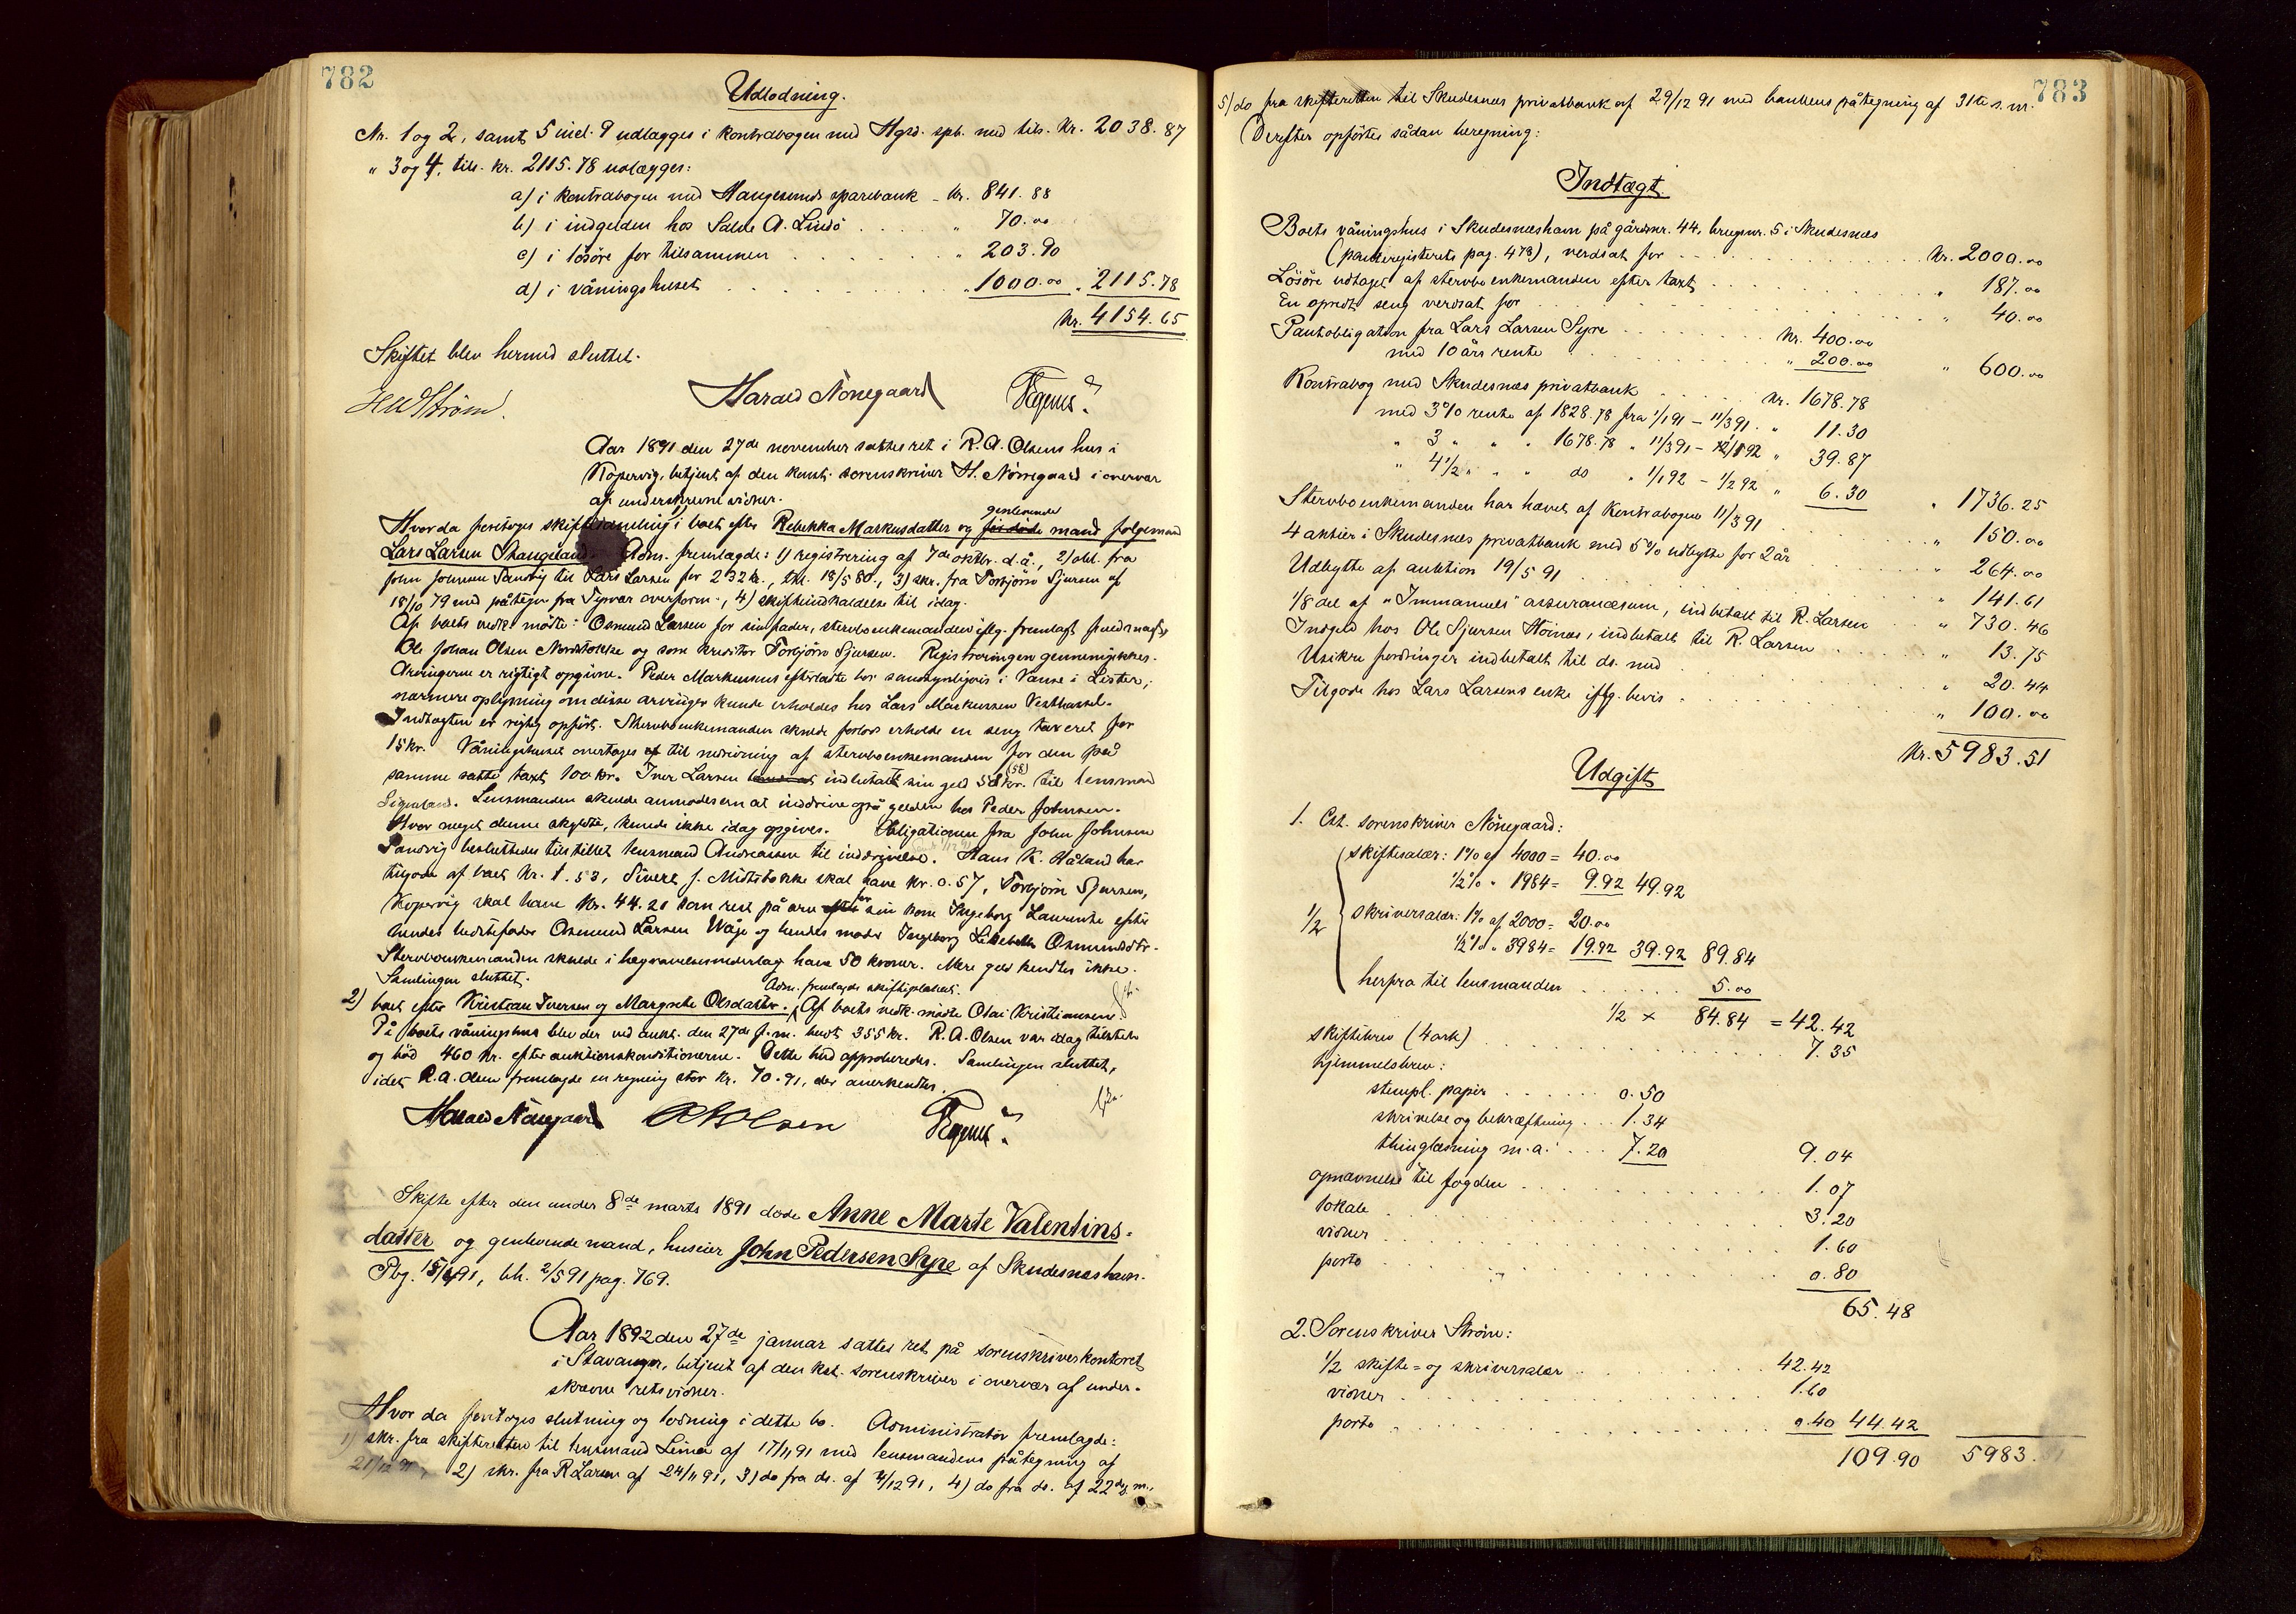 782
Udlodning.
Nr. 1 og 2, samt 5 incl. 9 udlægges i kontrabogen med Hgsd. spb. med tils. Kr. 2038.87
" 3 og 4, tils. kr. 2115.78 udlægges:
a) i kontrabogen med Haugesunds sparebank - Kr. 841.88
b) i indgelden hos Salve A. Lindø . . . . " 70.00
c) i løsøre for tilsammen . . . . " 203.90
d) i våningshuset . . . . " 1000.00 " 2115.78
Kr. 4154.65
Skiftet blev hermed sluttet.
HWStrøm. Harald Nørregaard
Aar 1891 den 27de november sattes ret i R. A. Olsens hus i
Kopervig, betjent af den konst. sorenskriver H. Nørregaard i overvær
af underskrevne vidner.
Hvor da foretoges skiftesamling 1) i boet efter Rebekka Markusdatter og gjenlevende mand folgemand
Lars Larsen Stangeland. Adm. fremlagde: 1) registrering af 7de oktbr. d.å., 2) obl. fra
John Johnsen Sandvig til Lars Larsen for 232 kr., thl. 18/5 80, 3) skr. fra Torbjørn Sjursen af
18/10 79 med påtegn. fra Tysvær overform., 4) skifteindkaldelse til idag.
Af boets vedk. mødte: Osmund Larsen for sin fader, stervboenkemanden iflg. fremlagt fuldmagt,
Ole Johan Olsen Nordstokke og som kreditor Torbjørn Sjursen. Registreringen gjennemgikkes.
Arvingerne er rigtigt opgivne. Peder Markussens efterladte bor sandsynligvis i Vanse i Lister;
nærmere oplysning om disse arvinger kunde erholdes hos Lars Markussen
Indtægten er rigtig opført. Stervboenkemanden skulde forlods erholde en seng taxeret for
15 kr. Våningshuset overtages til nedrivning af stervboenkemanden for den på
samme satte taxt 100 kr. Iver Larsen indbetalt sin gjed 58 kr. (58) til lensmand
Sigvaland. Lensmanden skulde anmodes om at inddrive også gjelden hos Peder Johnsen.
Hvor meget denne skyldte, kunde ikke idag opgives. Obligationen fra John Johnsen
Sandvig besluttedes tilstillet lensmand Andreassen til inddrivelse. Hans K. Håland har
tilgode af boet kr. 1.53, Sivert J. Midtstokke skal have kr. 0.57, Torbjørn Sjursen,
Kopervig skal have kr. 44.20 som rest på arv for sin kone Ingeborg Laurentse efter
hendes bedstefader Osmund Larsen Våge og hendes moder Ingeborg Lisebeth Osmundsdtr.
Stervboenkemanden skulde i begravelsesvederlag have 50 kroner. Mere gjeld kendtes ikke.
Samlingen sluttet.
Adm. fremlagde skifteplakat.
2) boet efter Kristian Iversen og Margrete Olsdatter. Af boets vedk. mødte Olai Kristiansen.
På boets våningshus blev der ved aukt. den 27de f.m. budt 355 kr. R. A. Olsen var idag tilstede
og bød 460 kr. efter auktionskonditionerne. Dette bud approberedes. Samlingen sluttet,
idet R. A. Olsen fremlagde en regning stor kr. 70.91, der anerkendtes.
Harald Nørregaard RAOlsen
Skifte efter den under 8de marts 1891 døde Anne Marte Valentins-
datter og genlevende mand, huseier John Pedersen Syre af Skudesneshavn.
Rbg. 15/4 91, bh. 2/5 91 pag. 769.
Aar 1892 den 27de januar sattes ret på sorenskriverkontoret
i Stavanger, betjent af den kst. sorenskriver i overvær af under-
skrevne retsvidner.
Hvor da foretoges slutning og lodning i dette bo. Administrator fremlagde:
1) skr. fra skifteretten til lensmand Lima af 17/11 91 med lensmandens påtegning af
21/12 91, 2) skr. fra R Larsen af 24/11 91, 3) do fra ds. af /12 91, 4) do fra ds. af 22de s.m.,
783
5) do fra skifteretten til Skudesnes privatbank af 29/12 91 med bankens påtegning af 31te s.m.
Derefter opførtes sådan beregning:
Indtægt
Boets våningshus i Skudesneshavn på gårdsnr. 44, brugsnr. 5 i Skudesnes
(panteregisterets pag. 478), verdsat for . . . . Kr. 2000.00
Løsøre udtaget af stervboenkemanden efter taxt . . . . " 187.00
En opredt seng verdsat for . . . . " 40.00
Pantobligation fra Lars Larsen Syre . . . . Kr. 400.00
med 10 års rente . . . . " 200.00 " 600.00
Kontrabog med Skudesnes privatbank . . . . Kr. 1678.78
med 3% rente af 1828.78 fra 1/1 91 - 11/3 91 . " 11.30
" 3 " " " 1678.78 " 11/3 91 - 1/1 92 " 39.87
" 4 1/2 " " " do " 1/1 92 - 1/2 92 " 6.30 " 1736.25
Stervboenkemanden har hævet af kontrabogen 11/3 91 . . . . " 150.00
4 aktier i Skudesnes privatbank med 5% udbytte for 2 år . . . . " 264.00
Udbytte af auktion 19/5 91 . . . . " 141.61
1/8 del af "Immanuels" assurancesum, indbetalt til R. Larsen . . " 730.46
Indgeld hos Ole Sjursen Høines, indbetalt til R. Larsen . . . . " 13.75
Usikre fordringer indbetalt til ds. med . . . . " 20.44
Tilgode hos Lars Larsens enke iflg. bevis . . . . " 100.00
Kr. 5983.51
Udgift
1. Cst. sorenskriver Nørregaard:
skiftesalær: 1% af 4000 = 40.00
1/2% " 1984 = 9.92 49.92
1/2
skriversalær: 1% af 2000 = 20.00
1/2% " 3984 = 19.92 39.92 89.84
herfra til lensmanden . . . . 5.00
1/2 × 84.84 = 42.42
skiftebrev (4 ark) . . . . 7.35
hjemmelsbrev:
stempl. papir . . . . 0.50
skrivelse og bekræftning . . . 1.34
thinglæsning m.a. . . . 7.20 9.04
opnævnelse til fogden . . . . 1.07
lokale . . . . 3.20
vidner . . . . 1.60
porto . . . . 0.80
65.48
2. Sorenskriver Strøm:
1/2 skifte= og skriversalær . . . . 42.42
vidner . . . . 1.60
porto . . . . 0.40 44.42
109.90 5983.51